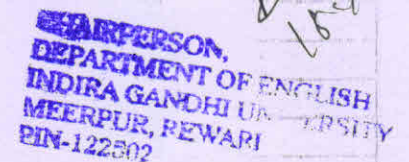 CHAIRPERSON,
DEPARTMENT OF ENGLISH
INDIRA GANDHI UNIVERSITY
MEERPUR, REWARI
PIN-122502